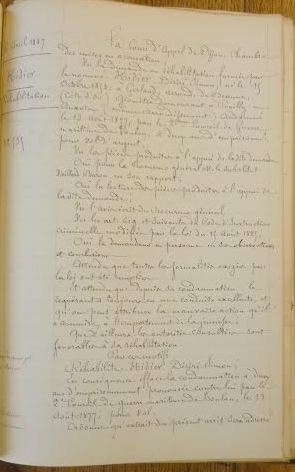 La Cour d'Appel de Dijon, Chambre
des mises en accusation,
Vu la demande en réhabilitation formée par
le nommé Hidier Désiré Simon, né le 15
Octobre 1852, à
(Côte d'or), demeurant à
condamné
le 13 Août 1877, par le 2me Conseil de guerre
maritime de Toulon, à deux ans d'emprisonnement
pour vol d'argent,
Vu les pièces produites à l'appui de la demande
Ouï pour le Procureur général M. le Substitut
en son rapport;
Ouï la lecture des pièces produites à l'appui de
la dite demande;
Vu l'avis écrit du Procureur général,
Vu les art. 619 et suivants du Code d'Instruction
criminelle modifiés par la loi du 14 août 1885,
Ouï le demandeur en personne en ses observations
et conclusions
Attendu que toutes les formalités exigées par
la loi ont été remplies
Et attendu que depuis sa condamnation le
requérant a toujours eu une conduite excellente, et
qu'on peut attribuer la mauvaise action qu'il
a commise, à l'emportement de la jeunesse;
Que d'ailleurs les autorités consultées sont
favorables à sa réhabilitation
Par ces motifs
Réhabilite Hidier Désiré Simon,
En conséquence efface la condamnation à deux
ans d'emprisonnement prononcée contre lui par le
2e Conseil de guerre maritime de Toulon, le 13
Août 1877, pour vol.
Ordonne qu'extrait du présent arrêt sera adressé
1887
Hidier
Réhabilitation